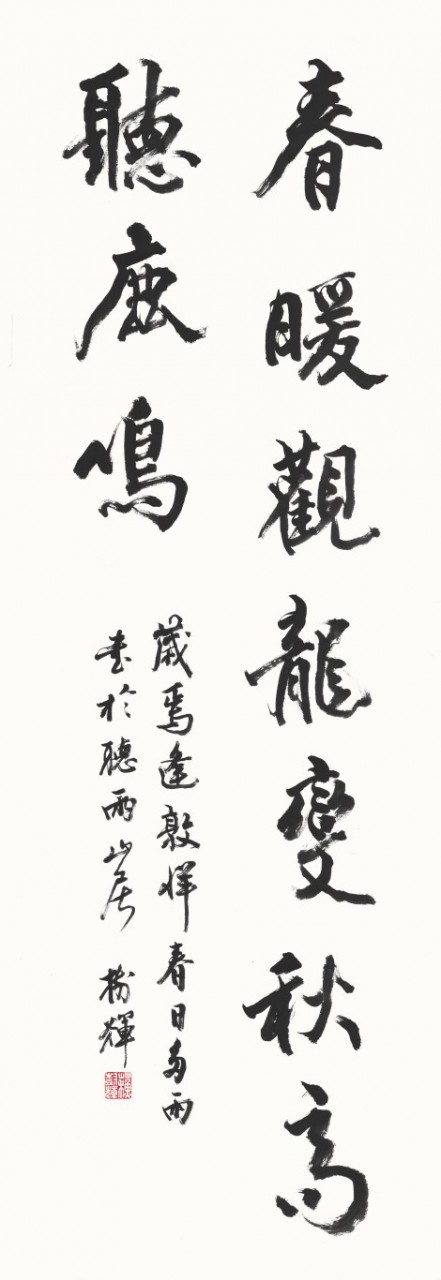 春暖觀龍變秋高
聽鹿鳴
歲焉逢敦牂春日多雨
書於聽雨山居 樹輝